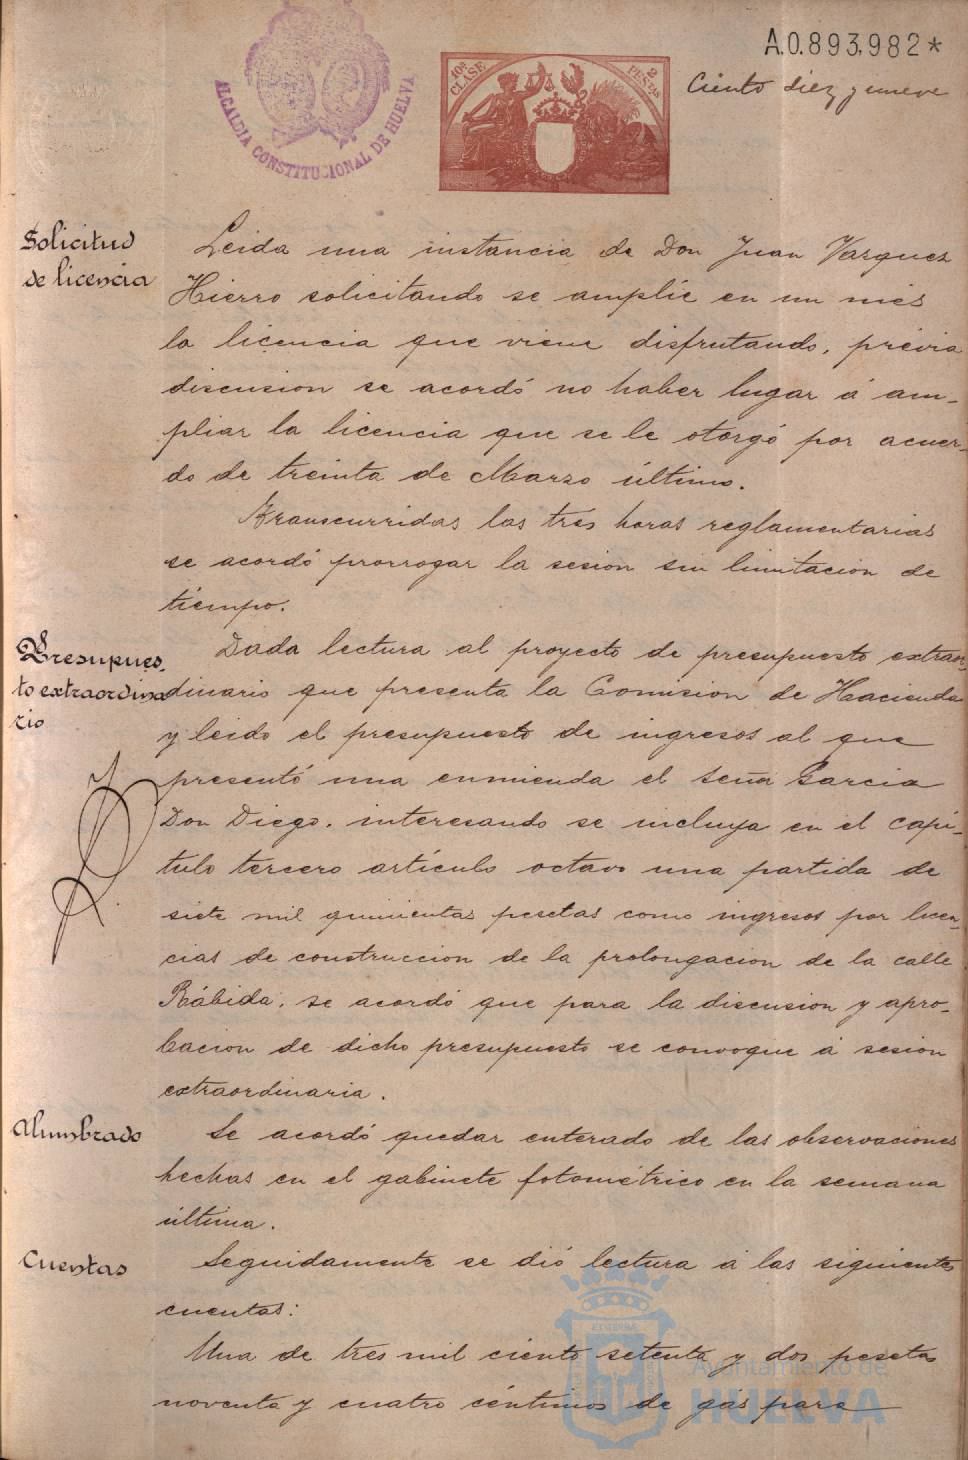 A.0.893,982*
Ciento diez y nueve
10ª CLASE
2 PESETAS
ALCALDIA CONSTITUCIONAL DE HUELVA
Solicitud
de licencia
Leida una instancia de Don Juan Vazquez
Hierro solicitando se amplíe en un més
la licencia que viene disfrutando, prévia
discusion se acordó no haber lugar á am-
pliar la licencia que se le otorgó por acuer-
do de treinta de Marzo último.
Transcurridas las tres horas reglamentarias
se acordó prorrogar la sesion sin limitacion de
tiempo.
Presupues-
to extraordina
rio
Dada lectura al proyecto de presupuesto extraor-
dinario que presenta la Comision de Hacienda
y leido el presupuesto de ingresos al que
presentó una enmienda el señor Garcia
Don Diego, interesando se incluya en el capí-
tulo tercero artículo octavo una partida de
siete mil quinientas pesetas como ingresos por licen-
cias de construccion de la prolongacion de la calle
Rábida, se acordó que para la discusion y apro-
bacion de dicho presupuesto se convoque á sesion
extraordinaria.
Alumbrado
Se acordó quedar enterado de las observaciones
hechas en el gabinete fotométrico en la semana
última.
Cuentas
Seguidamente se dió lectura á las siguientes
cuentas:
Una de tres mil ciento setenta y dos pesetas
noventa y cuatro céntimos de gas para
Ayuntamiento de
HUELVA